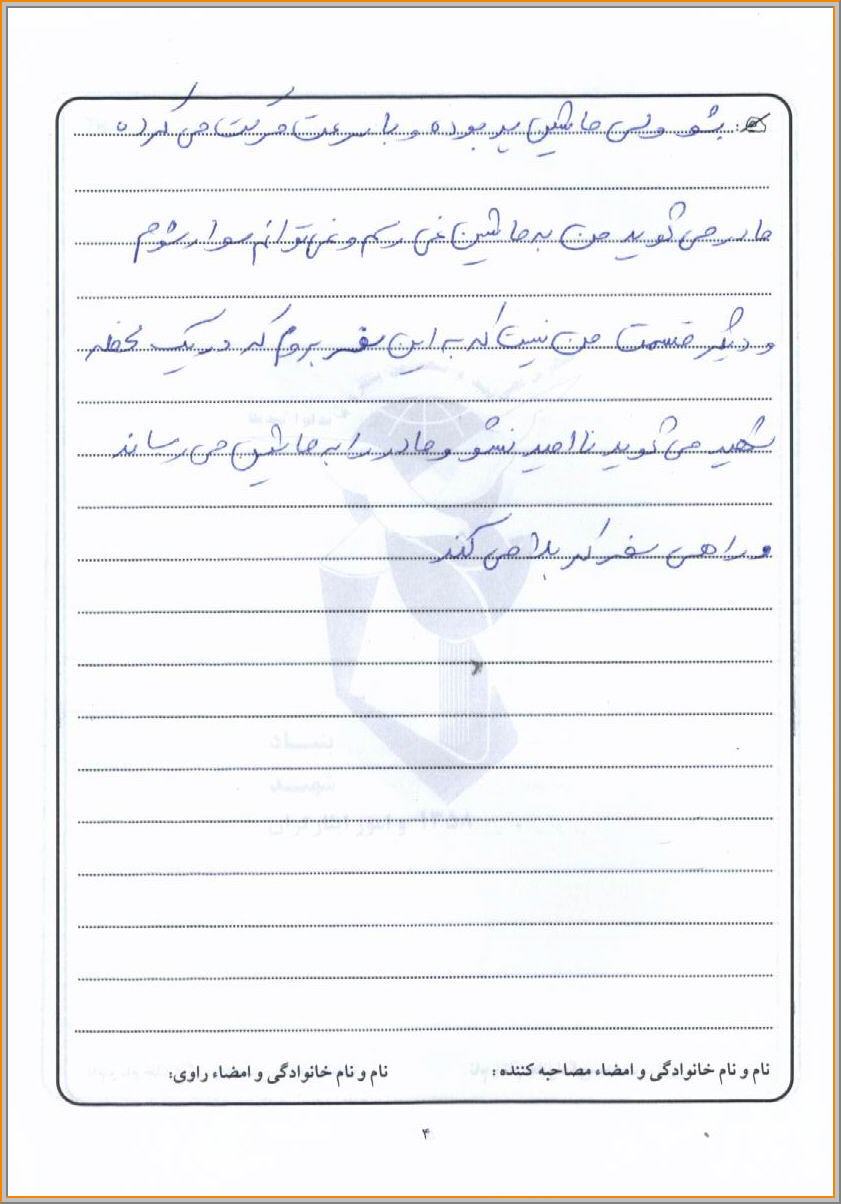 بشو ولی ماشین پر بوده و با سرعت حرکت می کرده
مادر می گوید من به ماشین نمی رسم و نمی توانم سوار شوم
و دیگر قسمت من نیست که به این سفر بروم که در یک لحظه
شهید می گوید نا امید نشو و مادر را به ماشین می رساند
و راهی سفر کربلا می کند
بنیاد
شهید
و امور ایثارگران
نام و نام خانوادگی و امضاء مصاحبه کننده :
نام و نام خانوادگی و امضاء راوی:
۴